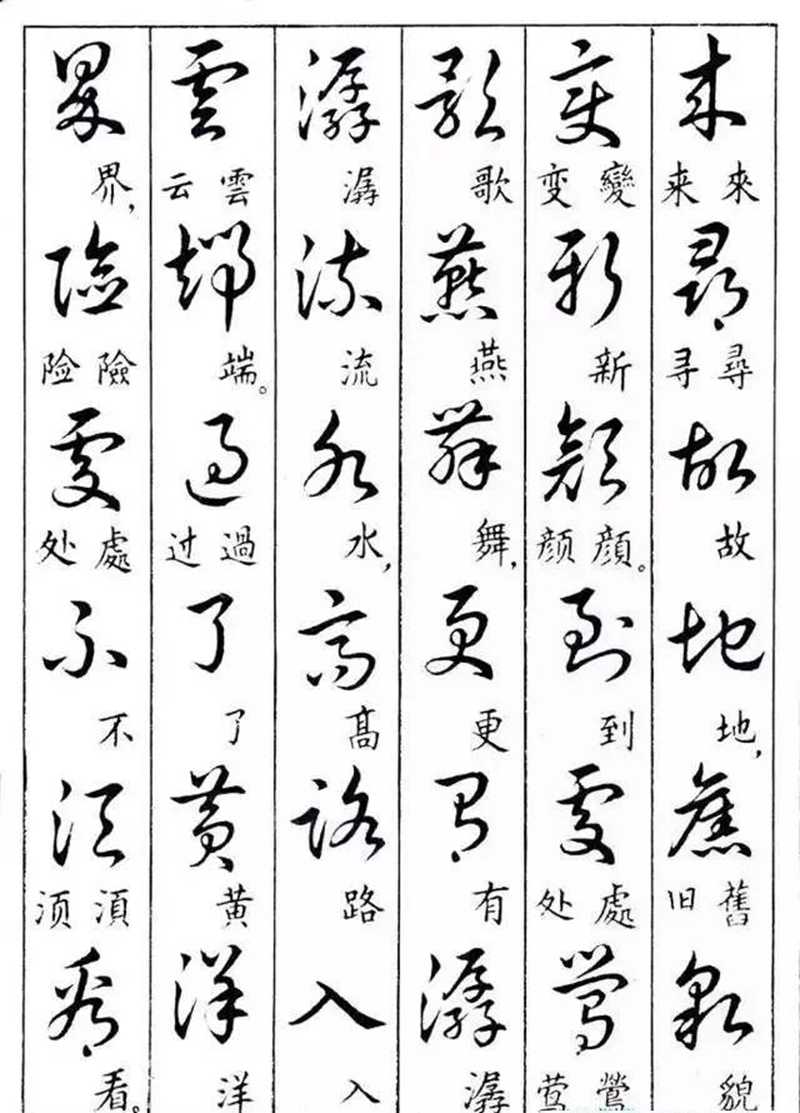 來 来 來 尋 寻 尋 故 故 地 地, 舊 旧 舊 貌 貌
變 变 變 新 新 顔 颜 顔。 到 到 處 处 處 鶯 莺 鶯
歌 歌 燕 燕 舞 舞, 更 更 有 有 潺 潺
潺 潺 流 流 水 水, 髙 髙 路 路 入 入
雲 云 雲 端 端。 過 过 過 了 了 黄 黄 洋 洋
界 界, 險 险 險 處 处 處 不 不 須 须 須 看 看。